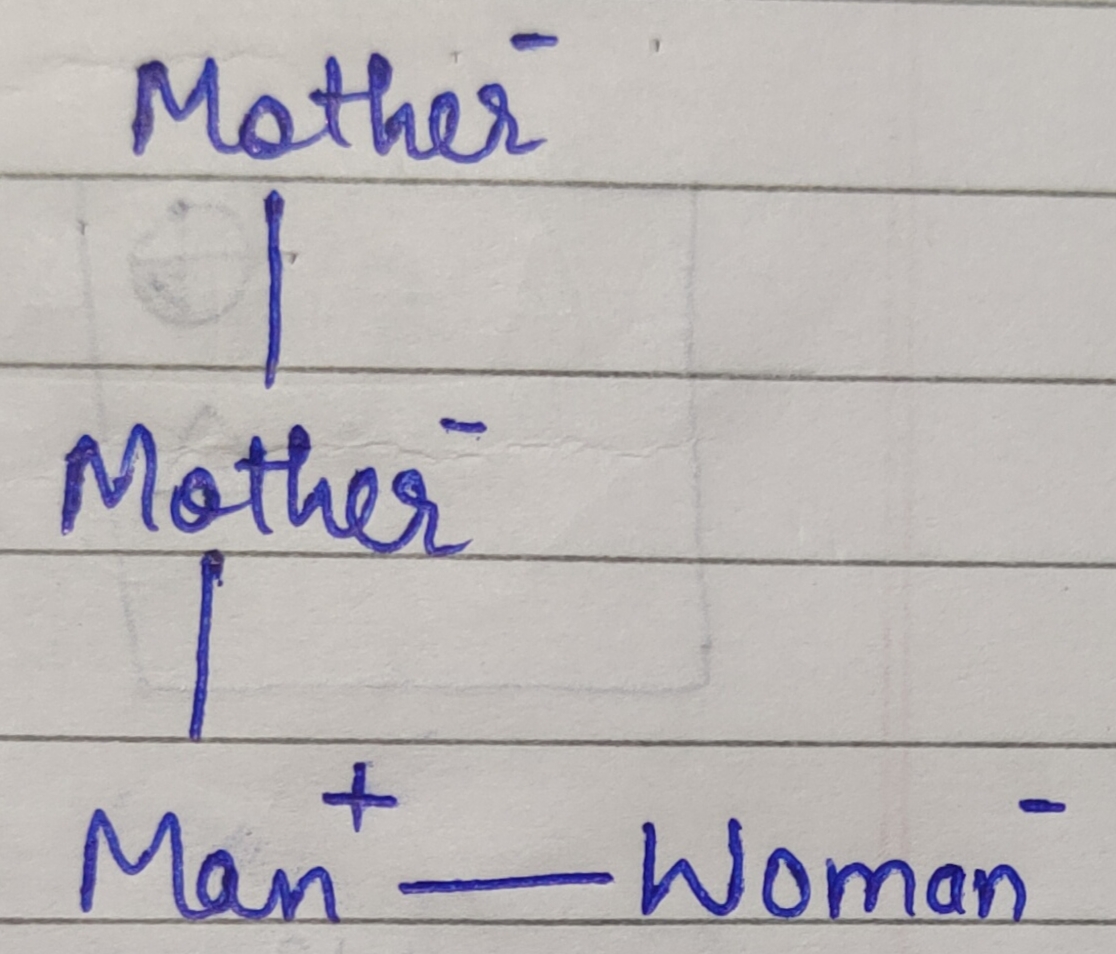 Mother -
Mother -
Man + — Woman -